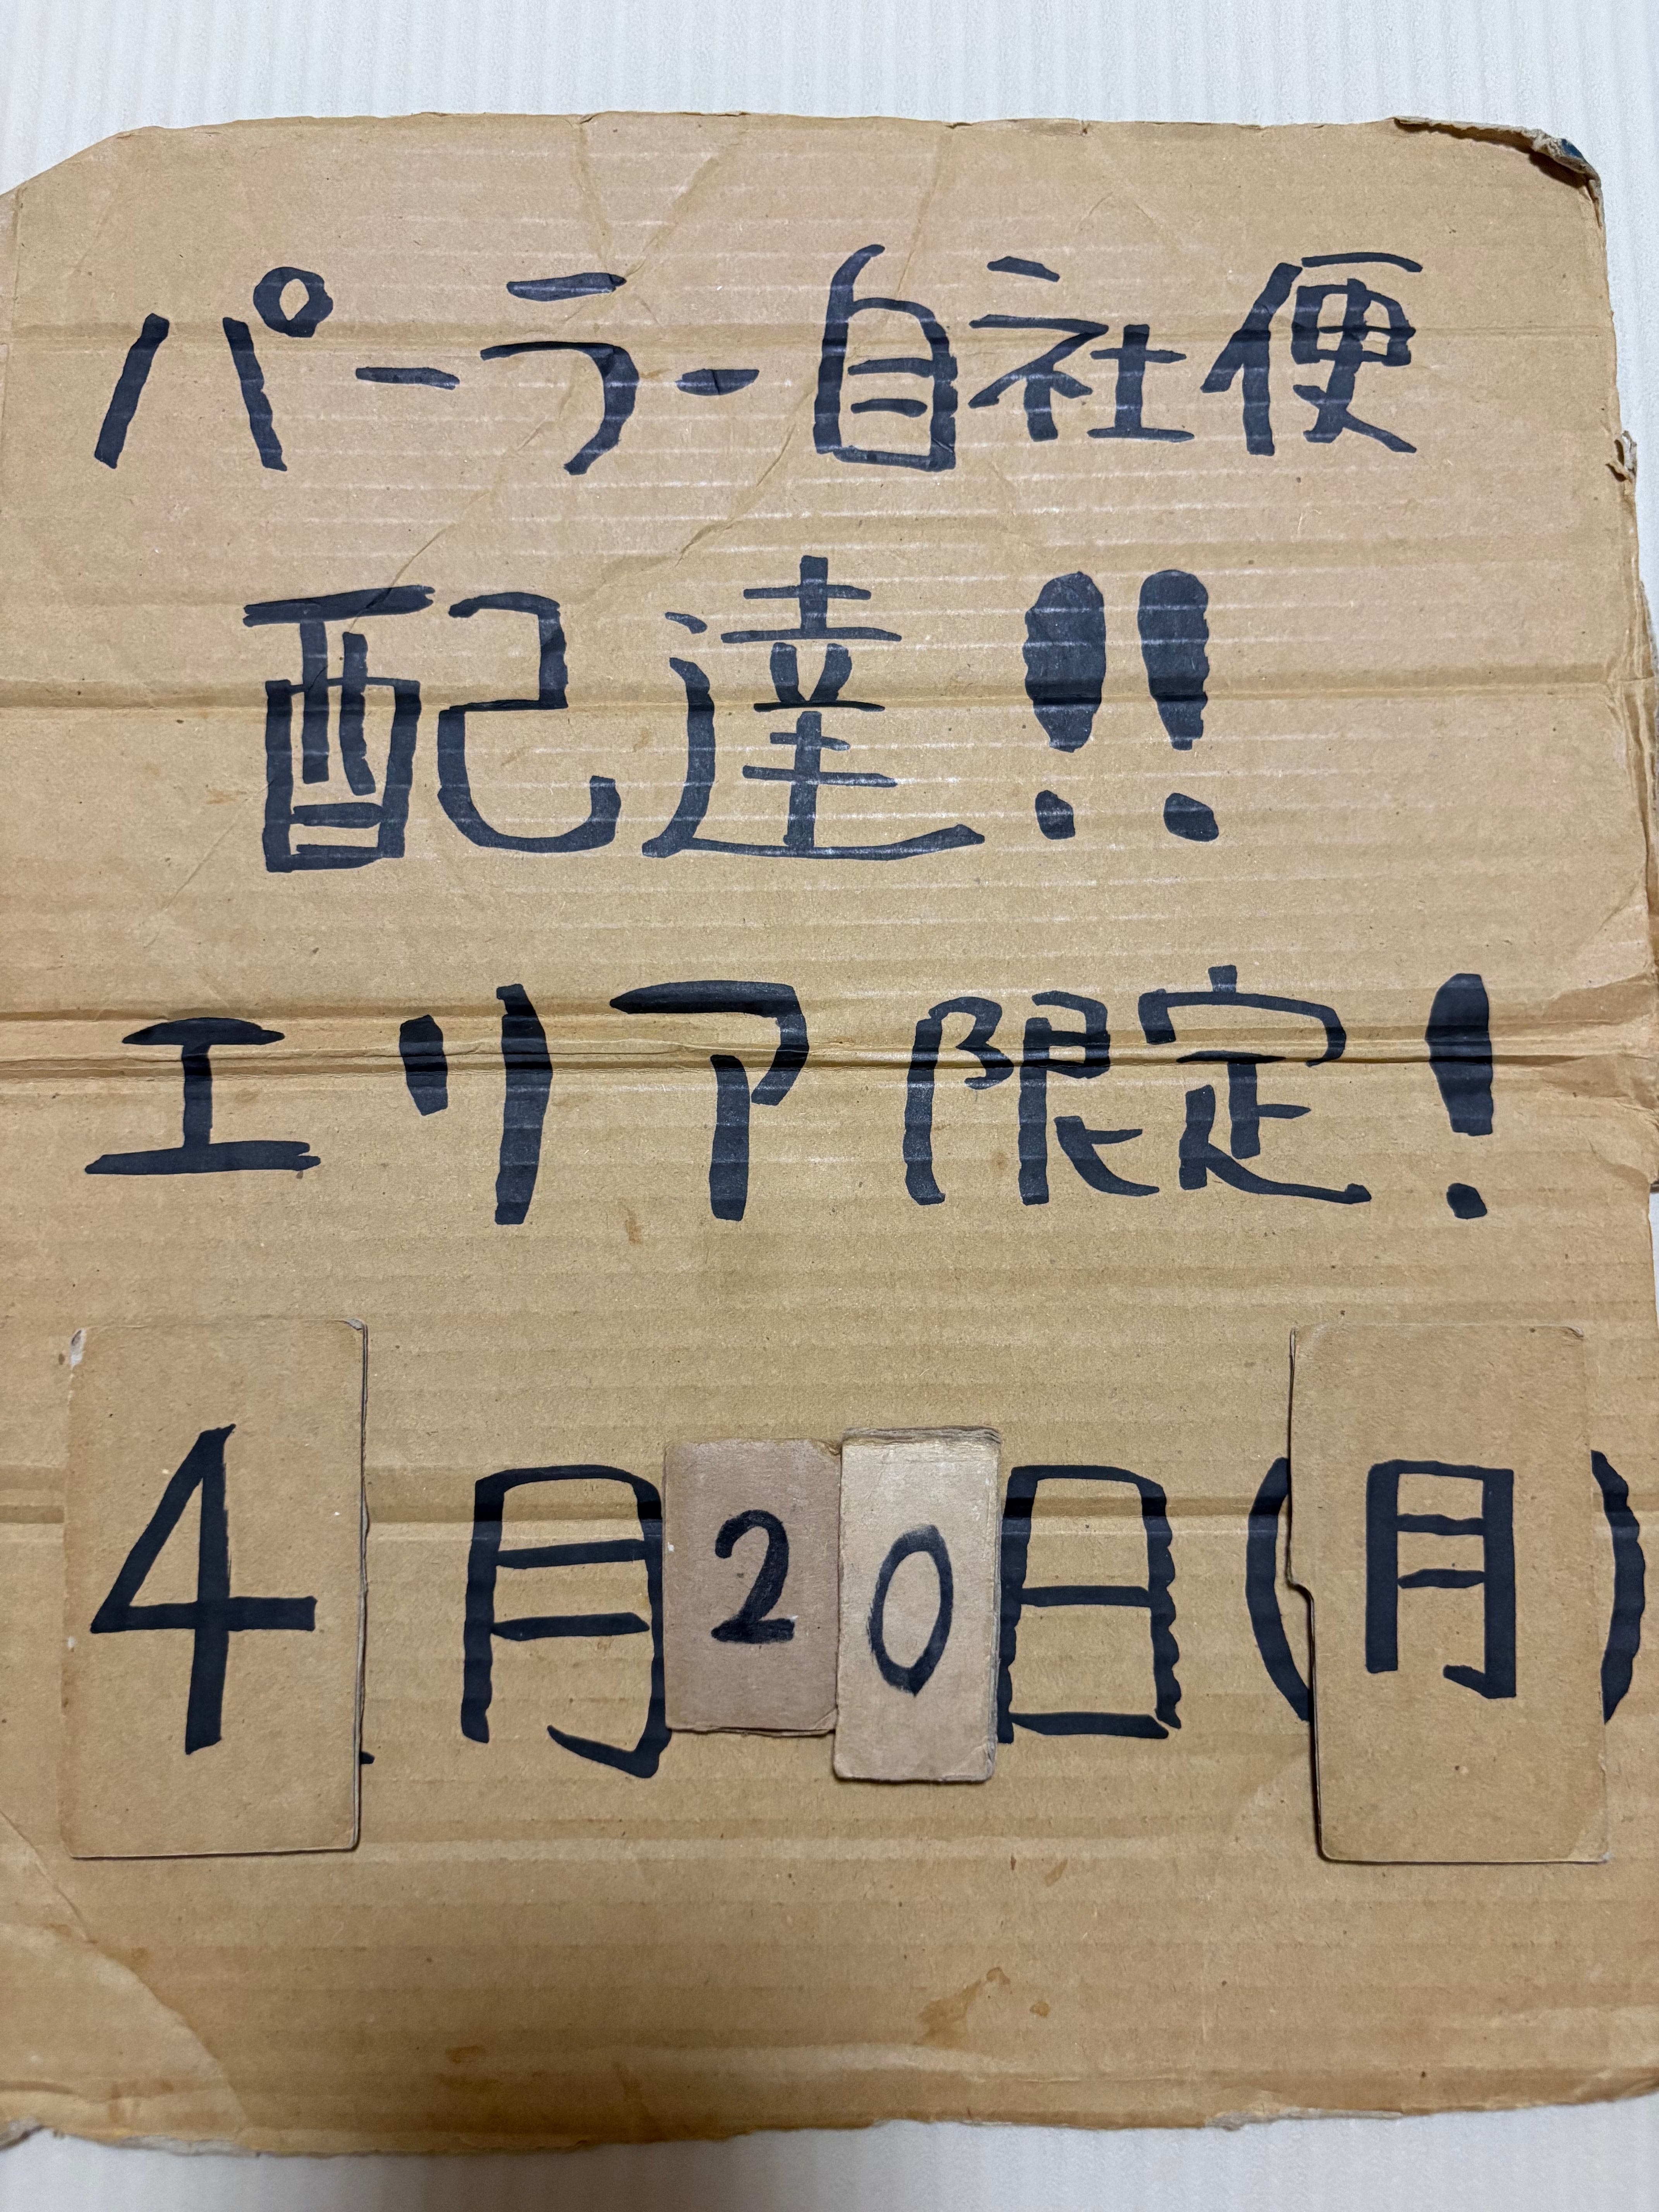 パーラー自社便
配達!!
エリア限定!
4月20日(月)